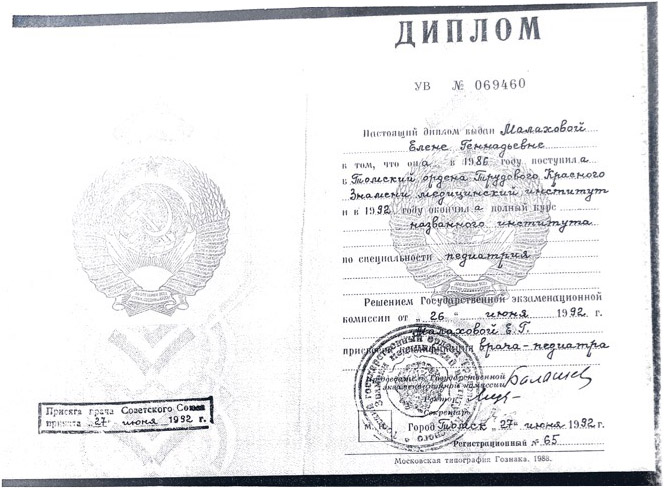 ДИПЛОМ
УВ № 069460
Настоящий диплом выдан Малаховой
Елене Геннадьевне
в том, что она в 1986 году поступила
в Томский ордена Трудового Красного
Знамени медицинский институт
и в 1992 году окончила полный курс
названного института
по специальности педиатрия
Решением Государственной экзаменационной
комиссии от „26“ июня 1992 г.
Малаховой Е.Г.
врача-педиатра
Государственной
экзаменационной комиссии
Секретарь
М. П. Город Томск „27“ июня 1992 г.
Регистрационный № 65
Московская типография Гознака. 1988.
Присяга врача Советского Союза
принята „27“ июня 1992 г.